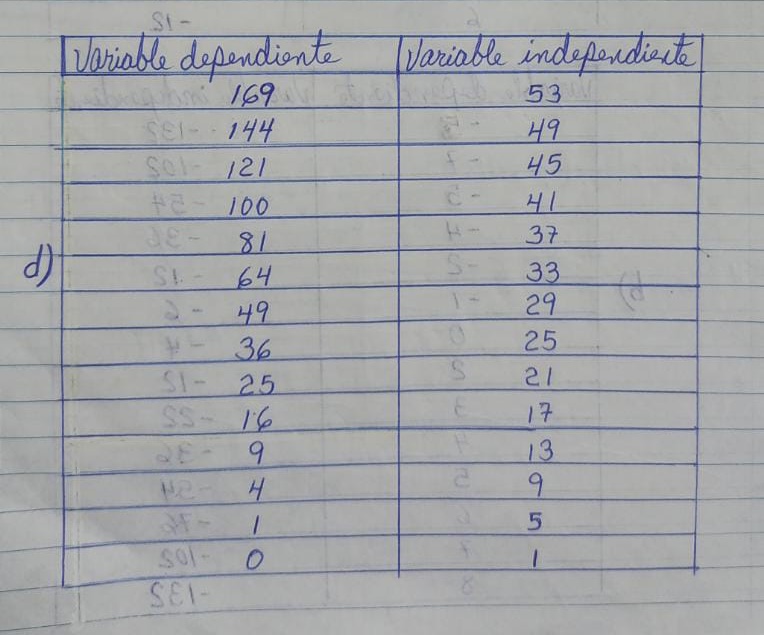 Variable dependiente Variable independiente
169 53
144 49
121 45
100 41
81 37
d) 64 33
49 29
36 25
25 21
16 17
9 13
4 9
1 5
0 1